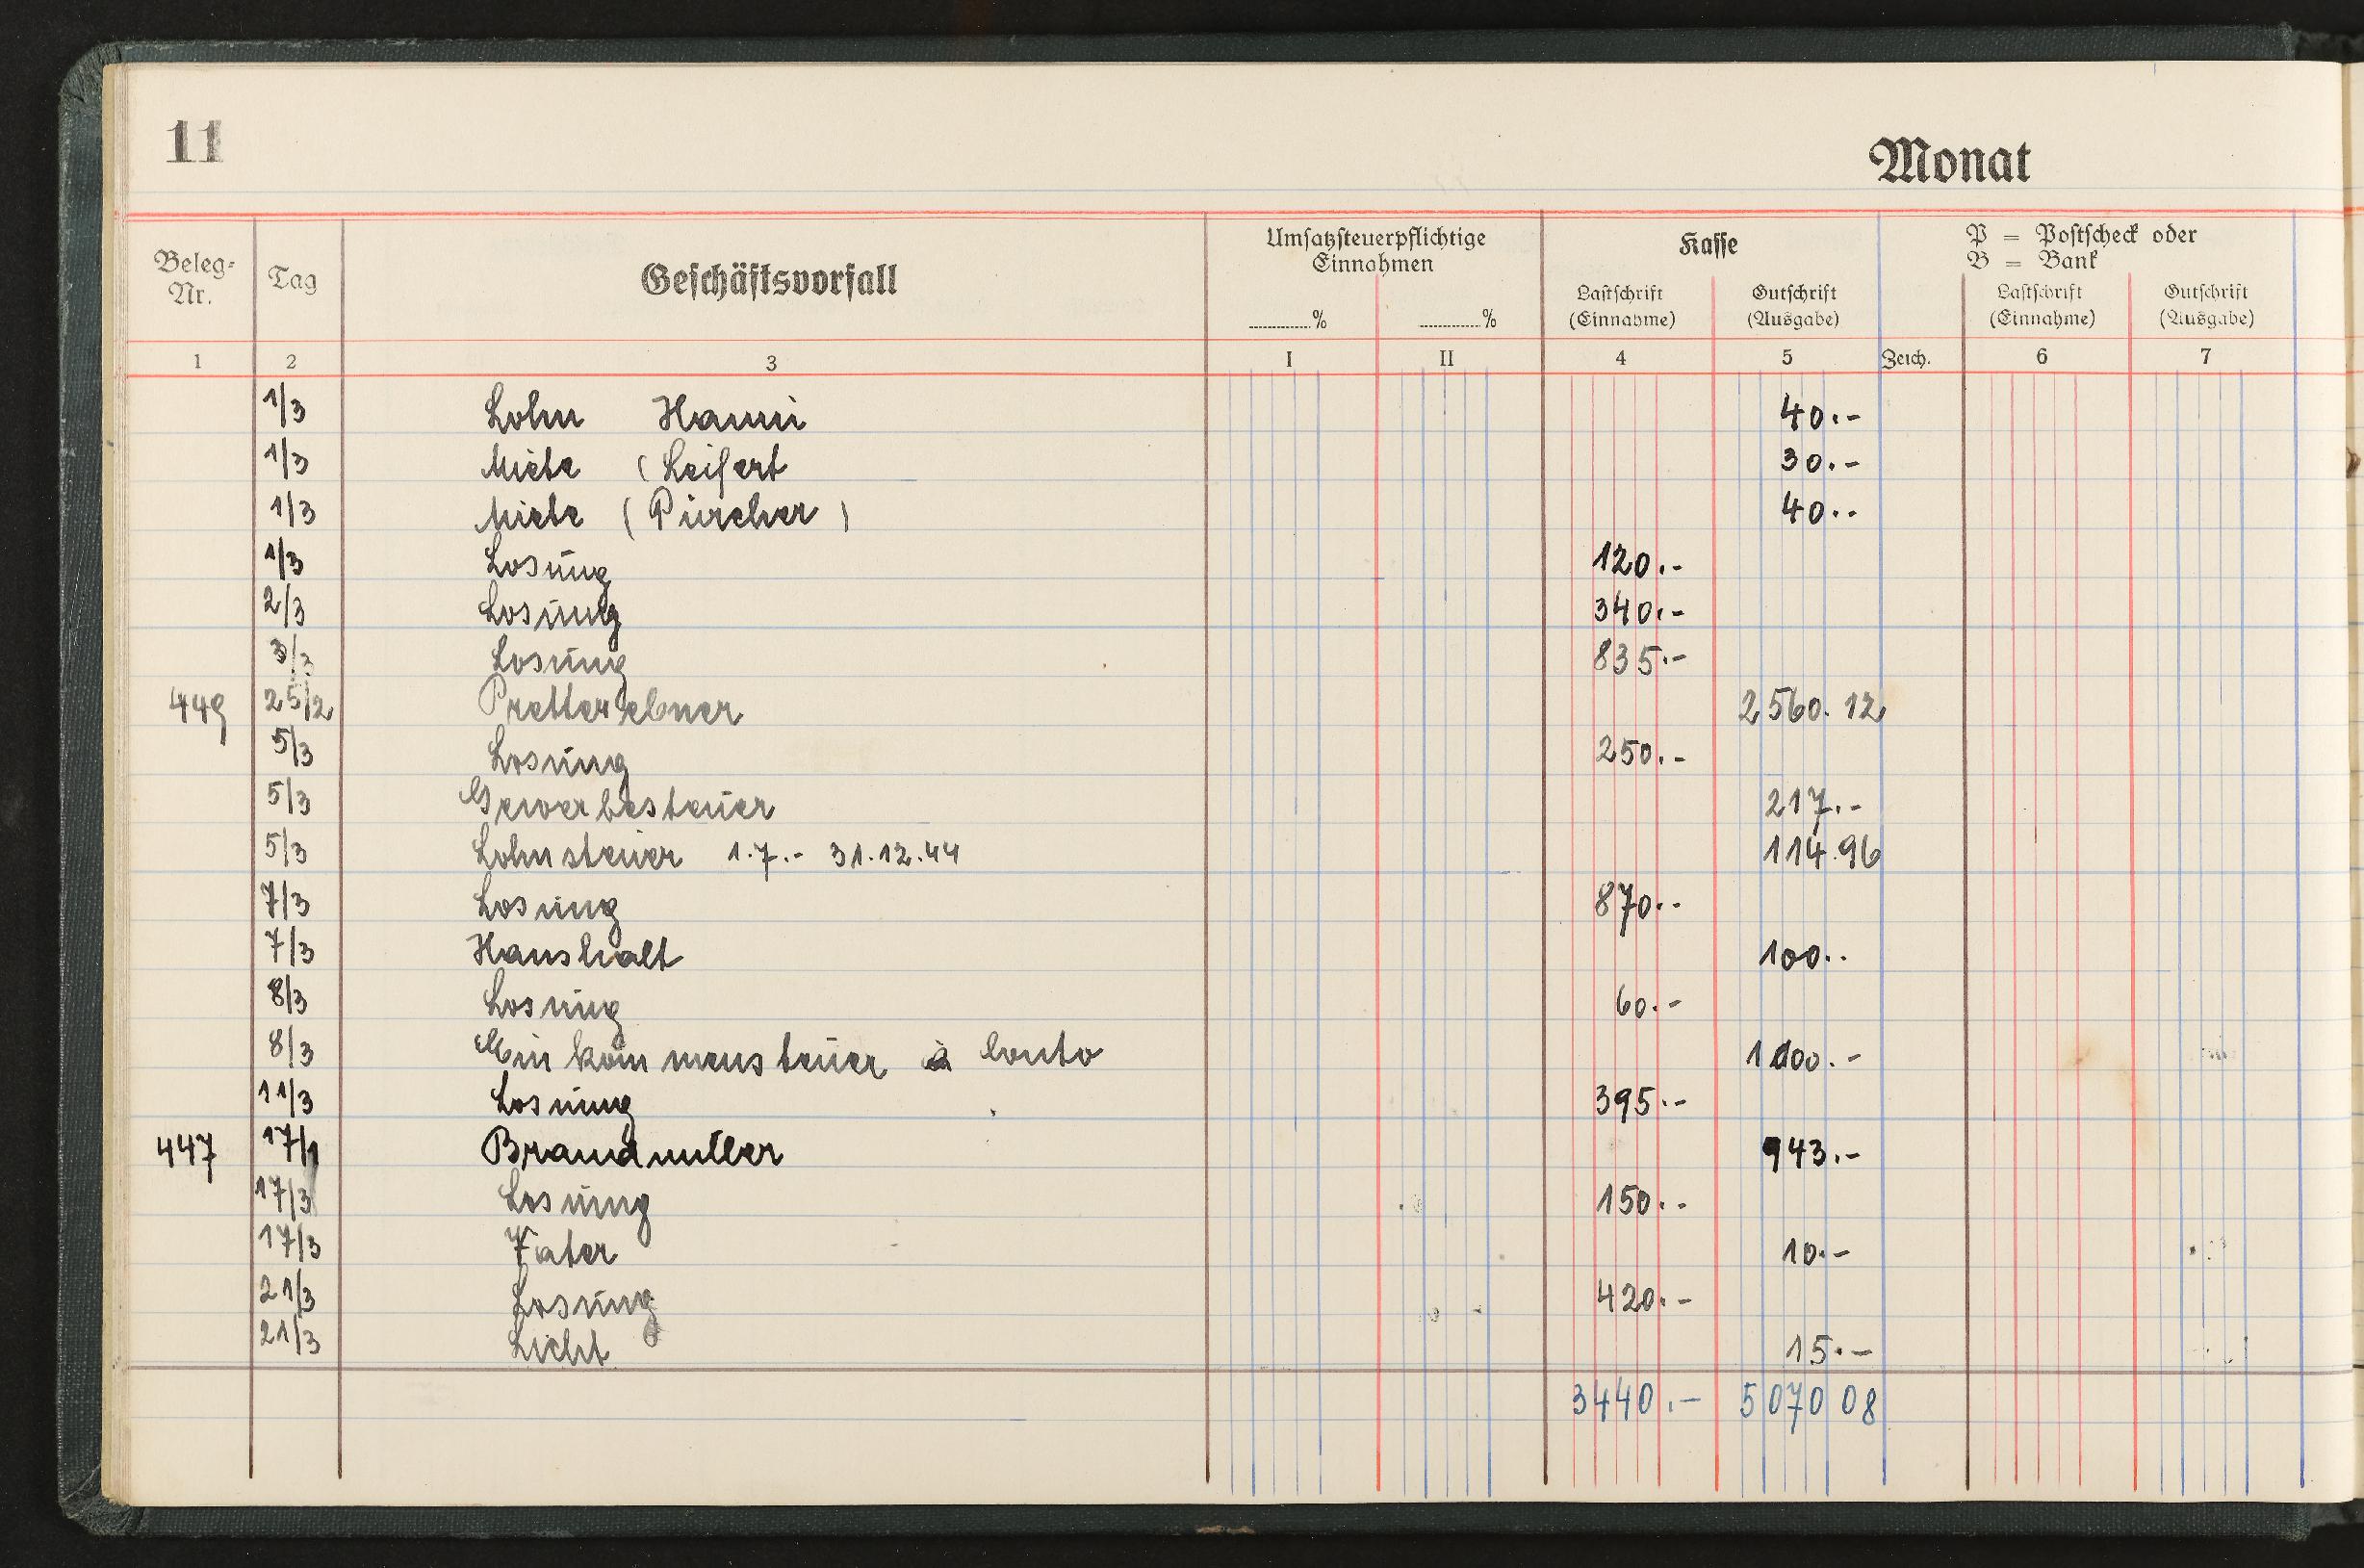 11
Monat
Beleg-Nr. Tag Geschäftsvorfall Umsatzsteuerpflichtige Einnahmen Kasse P = Postscheck oder B = Bank
..........% ..........% Lastschrift (Einnahme) Gutschrift (Ausgabe) Lastschrift (Einnahme) Gutschrift (Ausgabe)
1 2 3 I II 4 5 Zeich. 6 7
1/3 Lohn Hanni 40.-
1/3 Miete (Leifert 30.-
1/3 Miete (Pürcher) 40.-
1/3 Losung 120.-
2/3 Losung 340.-
3/3 Losung 835.-
449 25/2 Pretterebner 2560.12
5/3 Losung 250.-
5/3 Gewerbesteuer 217.-
5/3 Lohnsteuer 1.7.- 31.12.44 114.96
7/3 Losung 870.-
7/3 Haushalt 100.-
8/3 Losung 60.-
8/3 Einkommensteuer à Conto 1000.-
11/3 Losung 395.-
447 17/1 Brandmüller 943.-
17/3 Losung 150.-
17/3 Vater 10.-
21/3 Losung 420.-
21/3 Licht 15.-
3440.- 5070 08